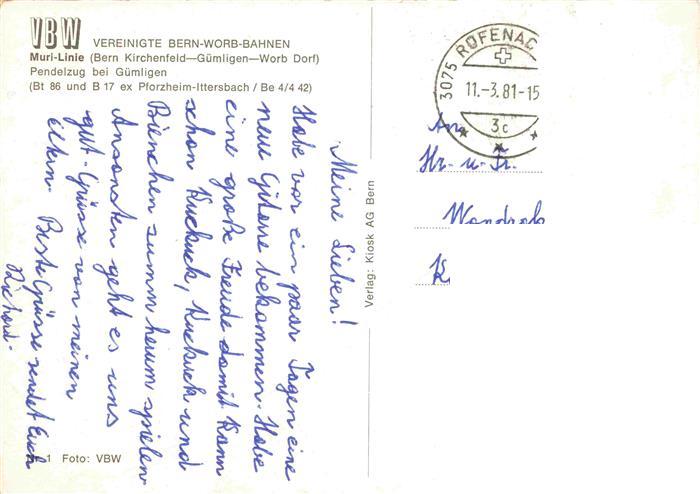 VBW VEREINIGTE BERN-WORB-BAHNEN
Muri-Linie (Bern Kirchenfeld—Gümligen—Worb Dorf)
Pendelzug bei Gümligen
(Bt 86 und B 17 ex Pforzheim-Ittersbach / Be 4/4 42)
Meine Lieben!
Habe vor ein paar Tagen eine
neue Gitarre bekommen. Habe
eine große Freude damit. Kann
schon Kuckuck, Kuckuck und
Bienchen summ herum spielen.
Ansonsten geht es uns
gut. Grüsse von meinen
Eltern. Beste Grüsse sendet Euch
Richard.
1 Foto: VBW
Verlag: Kiosk AG Bern
3075 RÜFENAC
11.-3.81-15
3c
An
Hr. u. Fr.